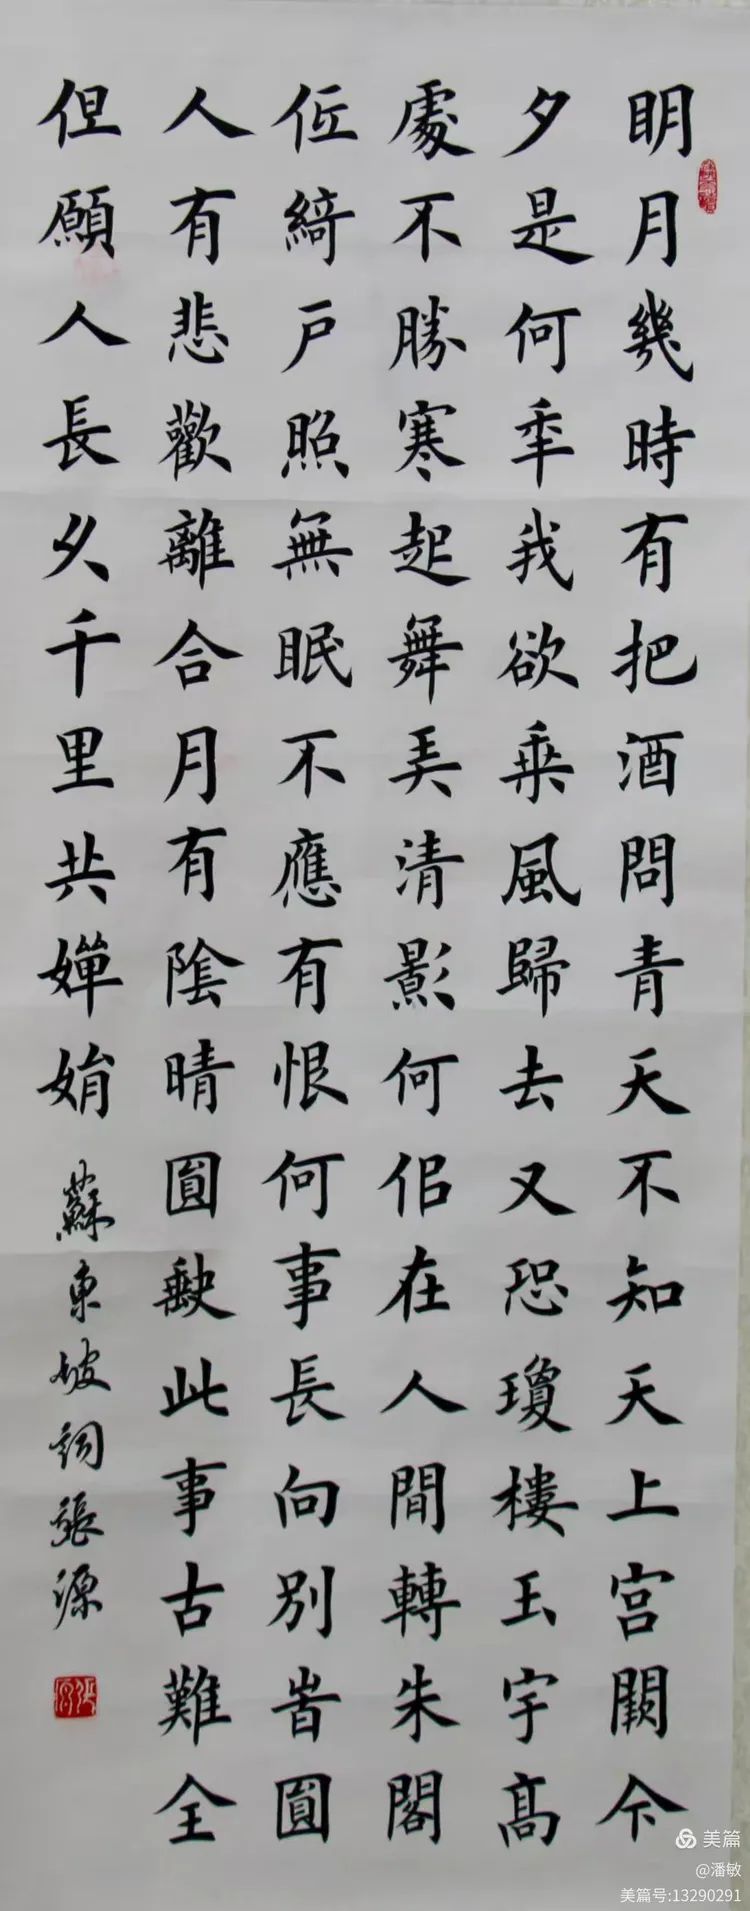 明月幾時有把酒問青天不知天上宮闕今
夕是何年我欲乘風歸去又恐瓊樓玉宇高
處不勝寒起舞弄清影何佀在人間轉朱閣
低綺戶照無眠不應有恨何事長向別旹圓
人有悲歡離合月有陰晴圓缺此事古難全
但願人長久千里共嬋娟 蘇東坡詞張源
美篇
@潘敏
美篇号:13290291